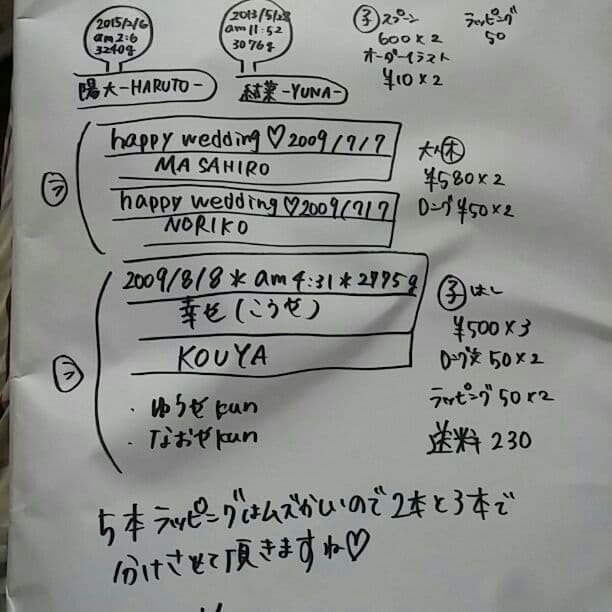 2015/2/6
am2:6
3240g
陽大-HARUTO-
2013/5/28
am11:52
3076g
結菜-YUNA-
子 スプーン
600×2
オーダーイラスト
¥10×2
ラッピング
50
happy wedding♡2009/7/7
MASAHIRO
happy wedding♡2009/7/7
NORIKO
大人 木
¥580×2
ロング ¥50×2
2009/8/8*am4:31*2775g
幸せ(こうせ)
KOUYA
・ゆうせkun
・なおせkun
子 はし
¥500×3
ロング文 50×2
ラッピング 50×2
送料 230
5本ラッピングはムズかしいので2本と3本で
分けさせて頂きますね♡